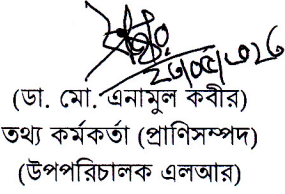 (ডা. মো. এনামুল কবীর)
তথ্য কর্মকর্তা (প্রাণিসম্পদ)
(উপপরিচালক এলআর)